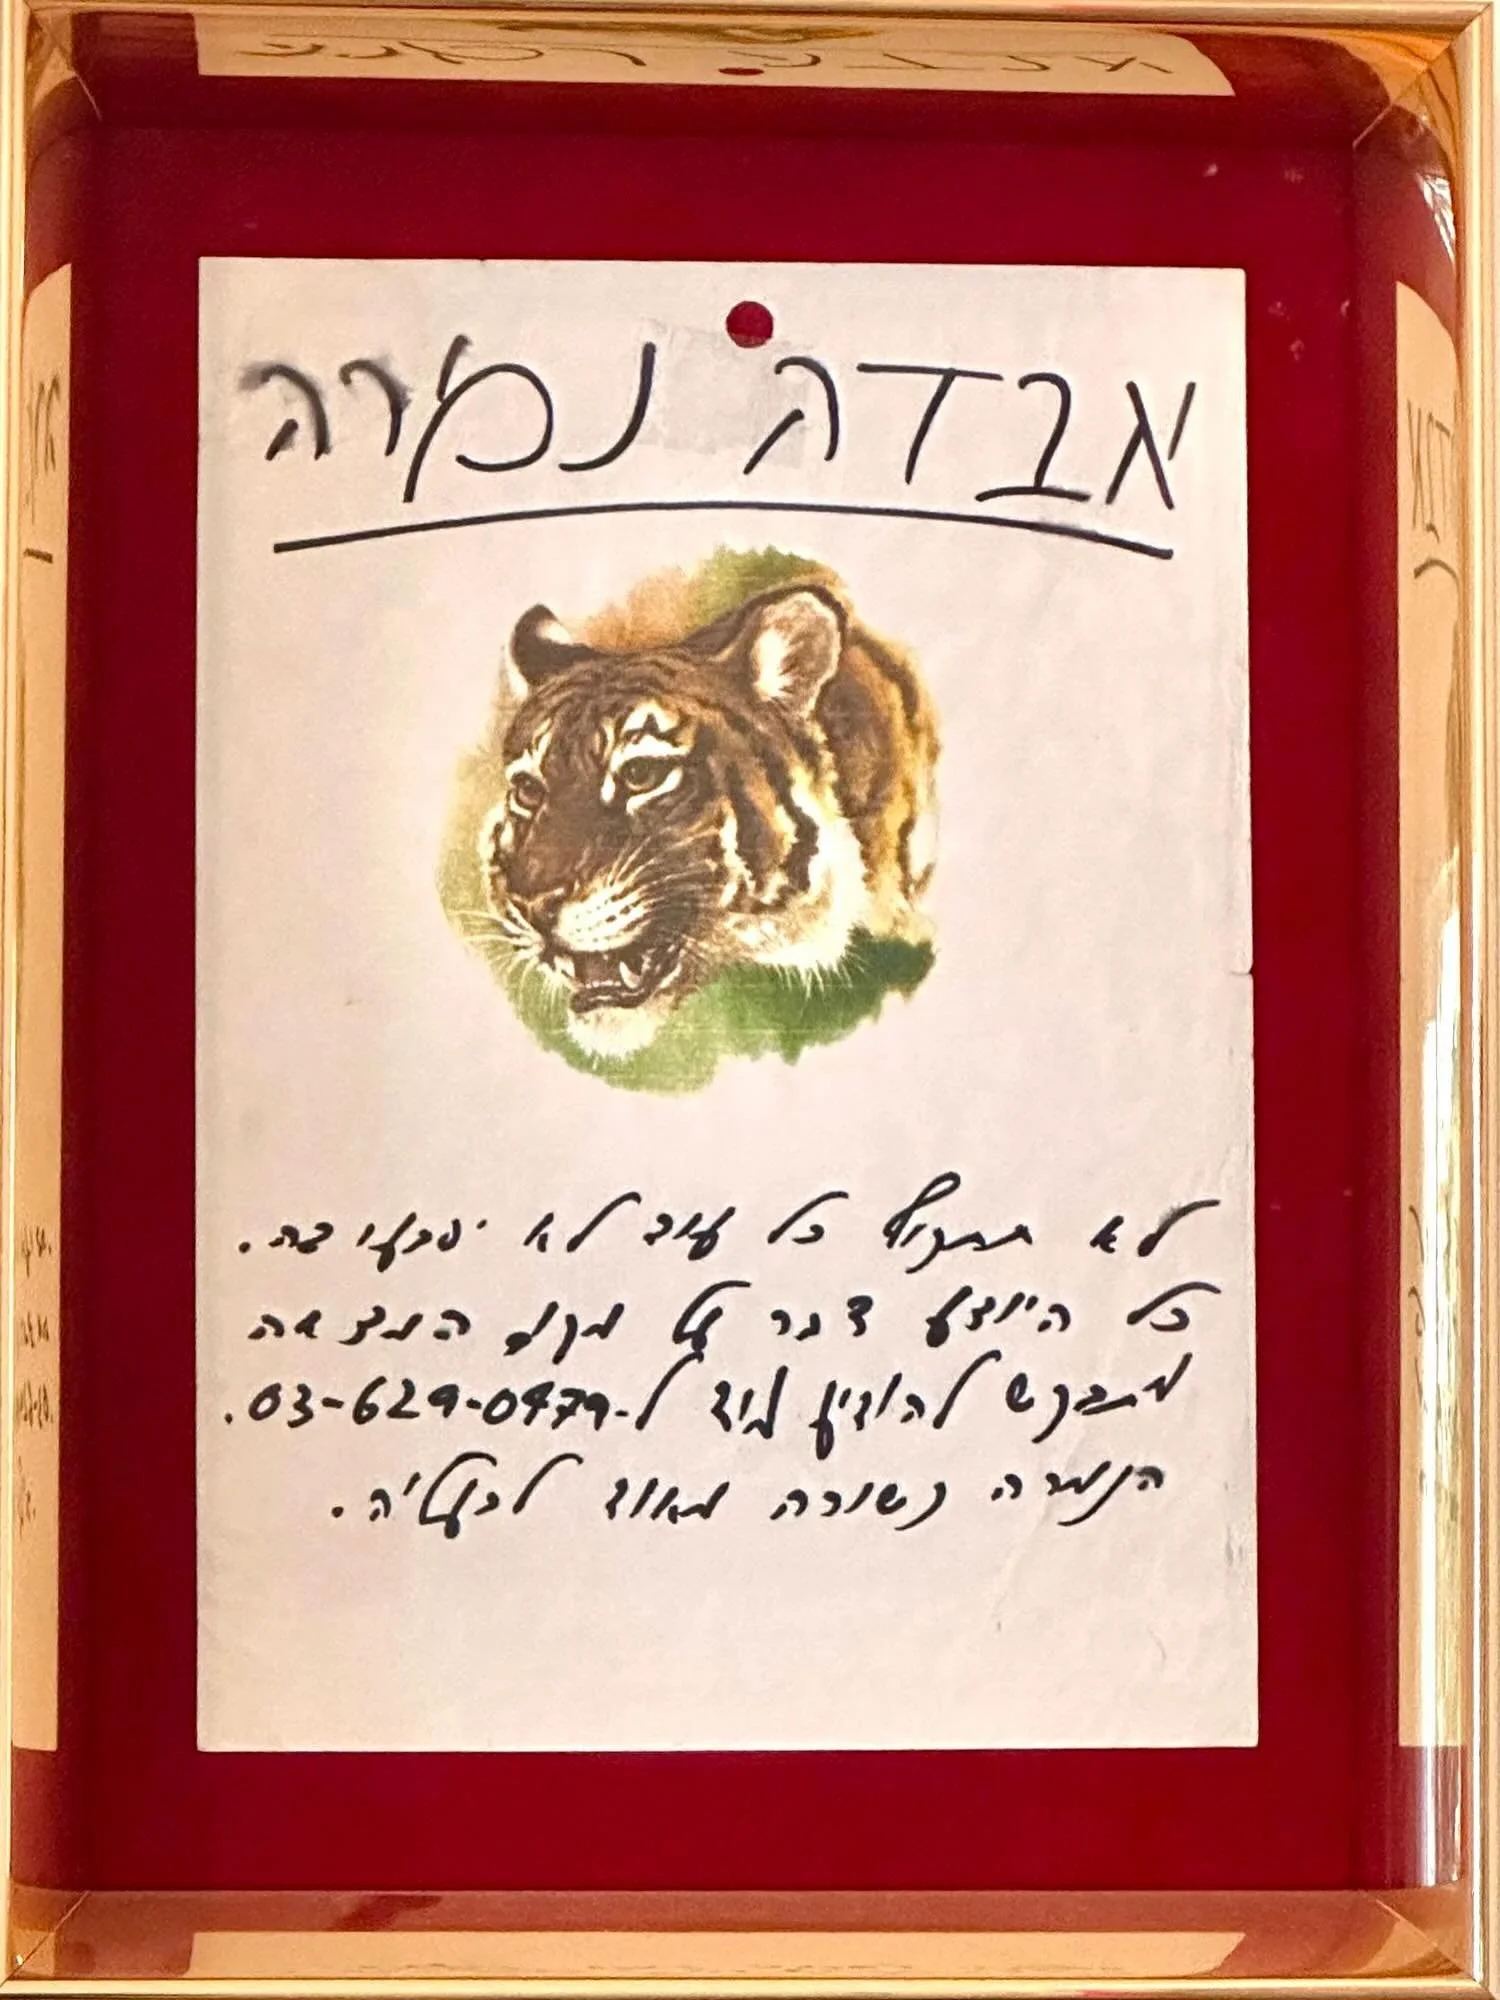 אבדה נמרה
לא תתקיף כל עוד לא יפגעו בה.
כל היודע דבר על מקום המצאה
מתבקש להודיע מיד ל-03-629-0479.
הנמרה קשורה מאוד לבעליה.